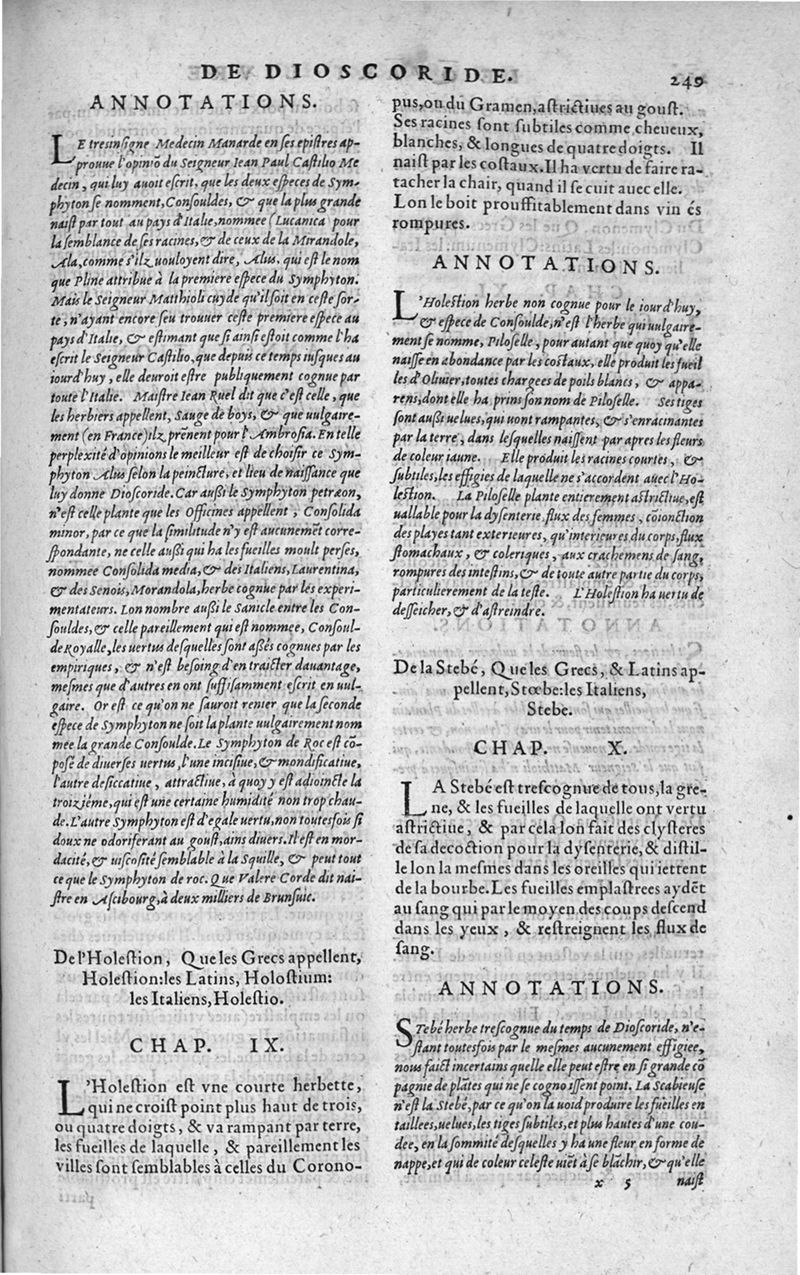 DE DIOSCORIDE.
249
ANNOTATIONS.
LE tresinsigne Medecin Manarde en ses epistres ap-
prouue l'opiniō du Seigneur Iean Paul Castilio Me
decin, qui luy auoit escrit, que les deux especes de Sym-
phyton se nomment, Consouldes, & que la plus grande
naist par tout au pays d'Italie, nommee (Lucanica) pour
la semblance de ses racines, & de ceux de la Mirandole,
Ala, comme s'ilz uouloyent dire, Alus, qui est le nom
que Pline attribue à la premiere espece du Symphyton.
Mais le Seigneur Matthioli cuyde qu'il soit en ceste sor-
te, n'ayant encore seu trouuer ceste premiere espece au
pays d'Italie, & estimant que si ainsi estoit comme l'ha
escrit le Seigneur Castilio, que depuis ce temps iusques au
iourd'huy, elle deuroit estre publiquement cognue par
toute l'Italie. Maistre Iean Ruel dit que c'est celle, que
les herbiers appellent, Sauge de boys, & que uulgaire-
ment (en France) ilz prēnent pour l'Ambrosia. En telle
perplexité d'opinions le meilleur est de choisir ce Sym-
phyton Alus selon la peincture, et lieu de naissance que
luy donne Dioscoride. Car aussi le Symphyton petræon,
n'est celle plante que les Officines appellent, Consolida
minor, par ce que la similitude n'y est aucunemēt corre-
spondante, ne celle aussi qui ha les fueilles moult perses,
nommee Consolida media, & des Italiens, Laurentina,
& des Senois, Morandola, herbe cognue par les experi-
mentateurs. Lon nombre aussi le Sanicle entre les Con-
souldes, & celle pareillement qui est nommee, Consoul-
de Royalle, les uertus desquelles sont assés cognues par les
empiriques, & n'est besoing d'en traicter dauantage,
mesmes que d'autres en ont suffisamment escrit en uul-
gaire. Or est ce qu'on ne sauroit renier que la seconde
espece de Symphyton ne soit la plante uulgairement nom
mee la grande Consoulde. Le Symphyton de Roc est cō-
posé de diuerses uertus, l'une incisiue, & mondificatiue,
l'autre desiccatiue, attractiue, à quoy y est adioincte la
troiziéme, qui est une certaine humidité non trop chau-
de. L'autre Symphyton est d'egale uertu, non toutesfois si
doux ne odoriferant au goust, ains diuers. Il est en mor-
dacité, & uiscosité semblable à la Squille, & peut tout
ce que le Symphyton de roc. Que Valere Corde dit nai-
stre en Ascibourg, à deux milliers de Brunsuic.
De l'Holestion, Que les Grecs appellent,
Holestion: les Latins, Holostium:
les Italiens, Holestio.
CHAP. IX.
L'Holestion est vne courte herbette,
qui ne croist point plus haut de trois,
ou quatre doigts, & va rampant par terre,
les fueilles de laquelle, & pareillement les
villes sont semblables à celles du Corono-
pus, ou du Gramen, astrictiues au goust.
Ses racines sont subtiles comme cheueux,
blanches, & longues de quatre doigts. Il
naist par les costaux. Il ha vertu de faire ra-
tacher la chair, quand il se cuit auec elle.
Lon le boit prouffitablement dans vin és
rompures.
ANNOTATIONS.
L'Holestion herbe non cognue pour le iourd'huy,
& espece de Consoulde, n'est l'herbe qui uulgaire-
ment se nomme, Piloselle, pour autant que quoy qu'elle
naisse en abondance par les costaux, elle produit les fueil
les d'Oliuier, toutes chargees de poils blancs, & appa-
rens, dont elle ha prins son nom de Piloselle. Ses tiges
sont aussi uelues, qui uont rampantes, & s'enracinantes
par la terre, dans lesquelles naissent par apres les fleurs
de coleur iaune. Elle produit les racines courtes, &
subtiles, les effigies de laquelle ne s'accordent auec l'Ho-
lestion. La Piloselle plante entierement astrictiue, est
uallable pour la dysenterie, flux des femmes, cōionction
des playes tant exterieures, qu'interieures du corps, flux
stomachaux, & coleriques, aux crachemens de sang,
rompures des intestins, & de toute autre partie du corps,
particulierement de la teste. L'Holestion ha uertu de
desseicher, & d'astreindre.
De la Stebé, Que les Grecs, & Latins ap-
pellent, Stœbe: les Italiens,
Stebe.
CHAP. X.
LA Stebé est trescognue de tous, la gre-
ne, & les fueilles de laquelle ont vertu
astrictiue, & par cela lon fait des clysteres
de sa decoction pour la dysenterie, & distil-
le lon la mesmes dans les oreilles qui iettent
de la bourbe. Les fueilles emplastrees aydēt
au sang qui par le moyen des coups descend
dans les yeux, & restreignent les flux de
sang.
ANNOTATIONS.
STebé herbe trescognue du temps de Dioscoride, n'e-
stant toutesfois par le mesmes aucunement effigiee,
nous faict incertains quelle elle peut estre en si grande cō
pagnie de plātes qui ne se cognoissent point. La Scabieuse
n'est la Stebé, par ce qu'on la uoid produire les fueilles en
taillees, uelues, les tiges subtiles, et plus hautes d'une cou-
dee, en la sommité desquelles y ha une fleur en forme de
nappe, et qui de coleur celeste uiēt à se blāchir, & qu'elle
x 5 naist